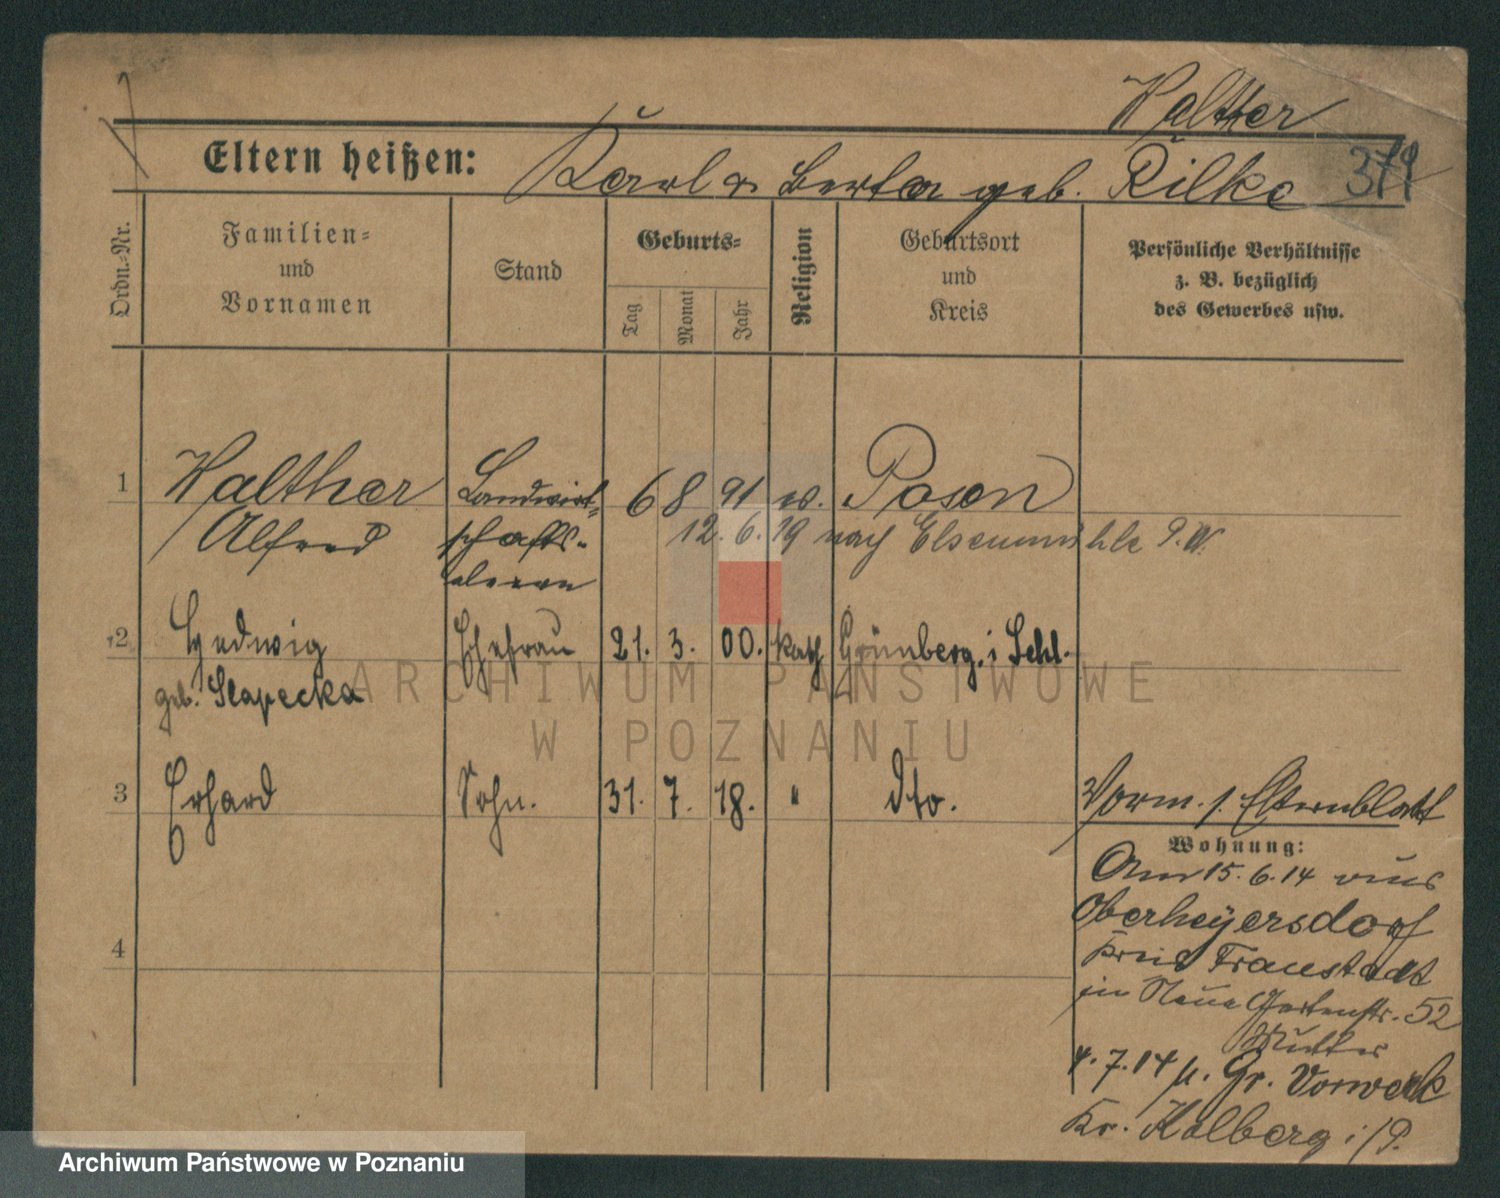 Walther
Eltern heißen: Karl & Berta geb. Rilke 379
Ordn.-Nr.
Familien-
und
Vornamen
Stand
Geburts-
Tag
Monat
Jahr
Religion
Geburtsort
und
Kreis
Persönliche Verhältnisse
z. B. bezüglich
des Gewerbes usw.
1 Walther Landwirt- 6 8 91 ev. Posen
Alfred schafts- 12. 6. 19 nach Elsenmühle P. W.
eleve
2 Hedwig Ehefrau 21. 3. 00. kath Grünberg. i Schl.
geb. Slapecka
ARCHIWUM PAŃSTWOWE
W POZNANIU
3 Erhard Sohn. 31. 7. 18. " dto. Vorm. s. Elternblatt
Wohnung:
Am 15. 6. 14 aus
Oberheyersdorf
4 Kreis Fraustadt
in Neue Gartenstr. 52
Mutter
4. 7. 14 n. Gr. Vorwerk
Kr. Kolberg i/P.
Archiwum Państwowe w Poznaniu